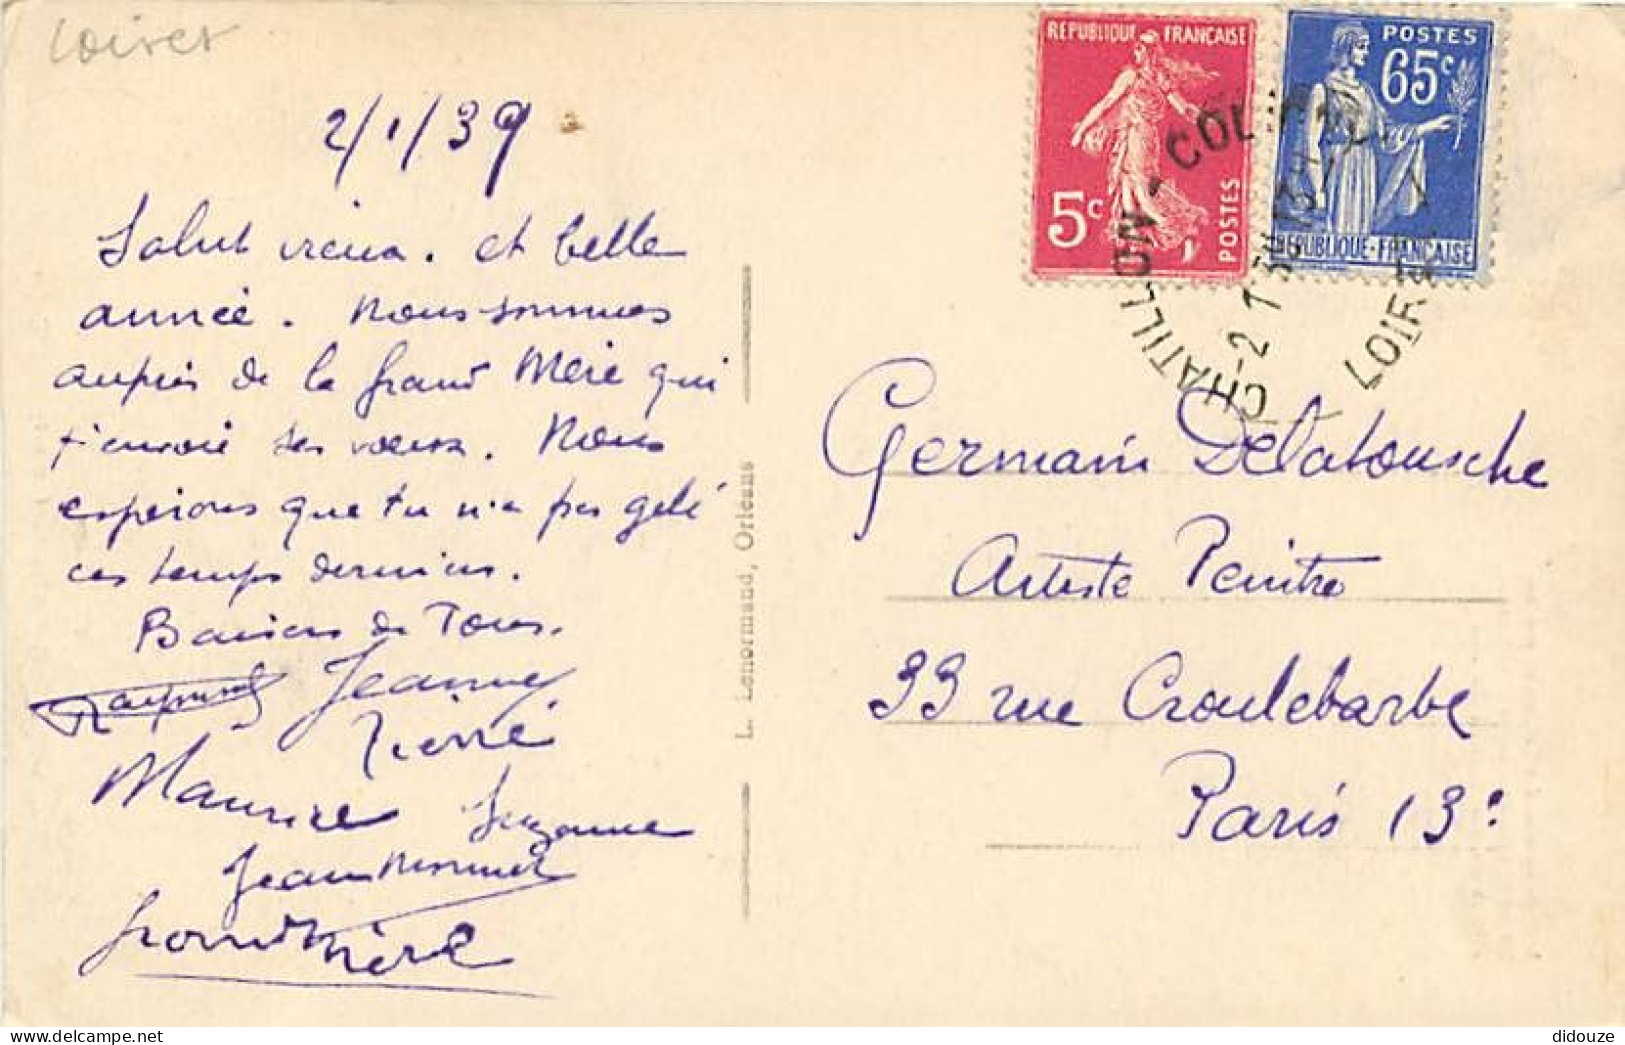 Loiret
2/1/39
Salut vieux. et belle
année. Nous sommes
auprès de la Grand Mère qui
t'envoie ses voeux. Nous
espérons que tu n'a pas gelé
ces temps derniers.
Baisers de Tous.
Raymond Jeanne
Pierre
Maurice Suzanne
Jean Monnet
Grand Mère
L. Lenormand, Orléans
REPUBLIQUE FRANÇAISE
5c
POSTES
POSTES
65c
REPUBLIQUE-FRANÇAISE
CHATILLON-COLIGNY
-2 1 39 13H
LOIRET
Germain Delatousche
Artiste Peintre
33 rue Croulebarbe
Paris 13e
didouze